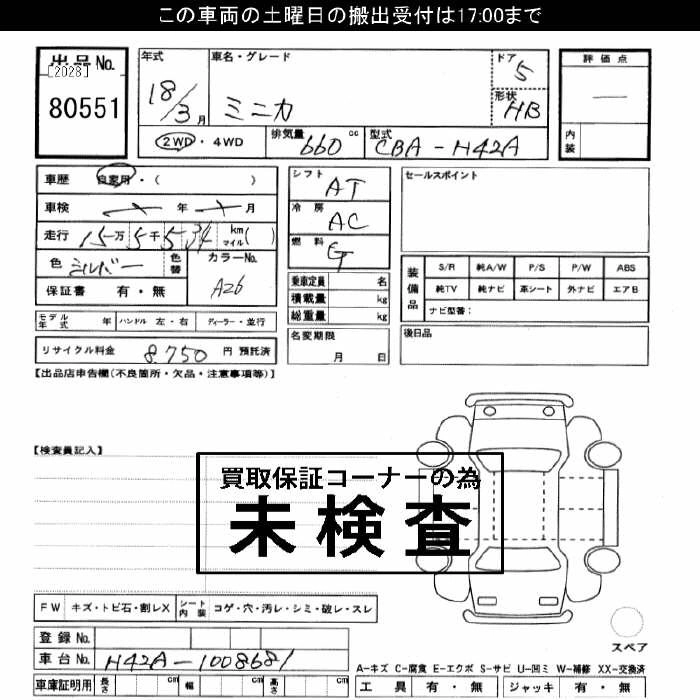 この車両の土曜日の搬出受付は17:00まで
出品No.
[2028]
80551
年式
18/3月
車名・グレード
ミニカ
ドア
5
形状
HB
2WD・4WD
排気量
660cc
型式
CBA-H42A
評価点
—
内装
車歴 自家用・( )
車検 年 月
走行 15万5千534 km マイル( )
色 シルバー 色替
カラーNo.
A26
保証書 有・無
モデル年式 年 ハンドル 左・右 ディーラー・並行
リサイクル料金 8,750 円 預託済
シフト AT
冷房 AC
燃料 G
乗車定員 名
積載量 kg
総重量 kg
名変期限
月 日
セールスポイント
装備品
S/R 純A/W P/S P/W ABS
純TV 純ナビ 革シート 外ナビ エアB
ナビ型番:
後日品
【出品店申告欄(不良箇所・欠品・注意事項等)】
【検査員記入】
買取保証コーナーの為
未検査
FW キズ・トビ石・割レX シート内装 コゲ・穴・汚レ・シミ・破レ・スレ
登録No.
車台No. H42A-1008681
車庫証明用 長さ cm 幅 cm 高さ cm
スペア
A-キズ C-腐食 E-エクボ S-サビ U-凹ミ W-補修 XX-交換済
工具 有・無 ジャッキ 有・無